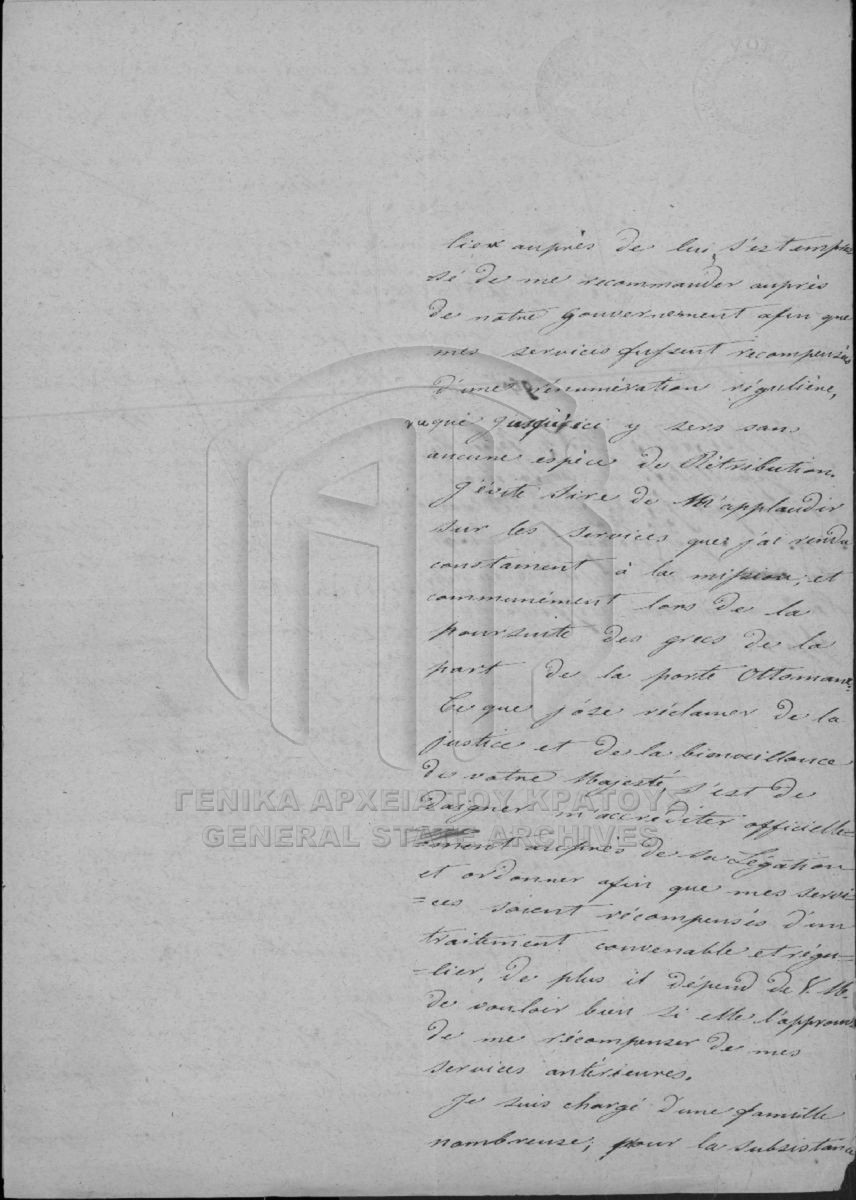 lier auprès de lui, s'est empres
sé de me recommander auprès
de notre Gouvernement afin que
mes services fussent recompensés
d'une rénumération régulière,
vuque jusqu'ici y sers sans
aucune espèce de Rétribution.
J'évite Sire de M'applaudir
sur les services que j'ai rendu
constament à la mission, et
communément lors de la
poursuite des grecs de la
part de la porte Ottomane.
Ce que j'ose réclamer de la
justice et de la bienveillance
de votre Majesté, s'est de
daigner m'accrediter officielle=
ment auprès de sa Légation
et ordonner afin que mes servi=
=ces soient récompensés d'un
traitement convenable et régu=
=lier, de plus il dépend de V. M.
de vouloir bien si elle l'approuve
de me récompenser de mes
services antérieures.
Je suis chargé d'une famille
nombreuse; pour la subsistance
ΓΕΝΙΚΑ ΑΡΧΕΙΑ ΤΟΥ ΚΡΑΤΟΥΣ
GENERAL STATE ARCHIVES